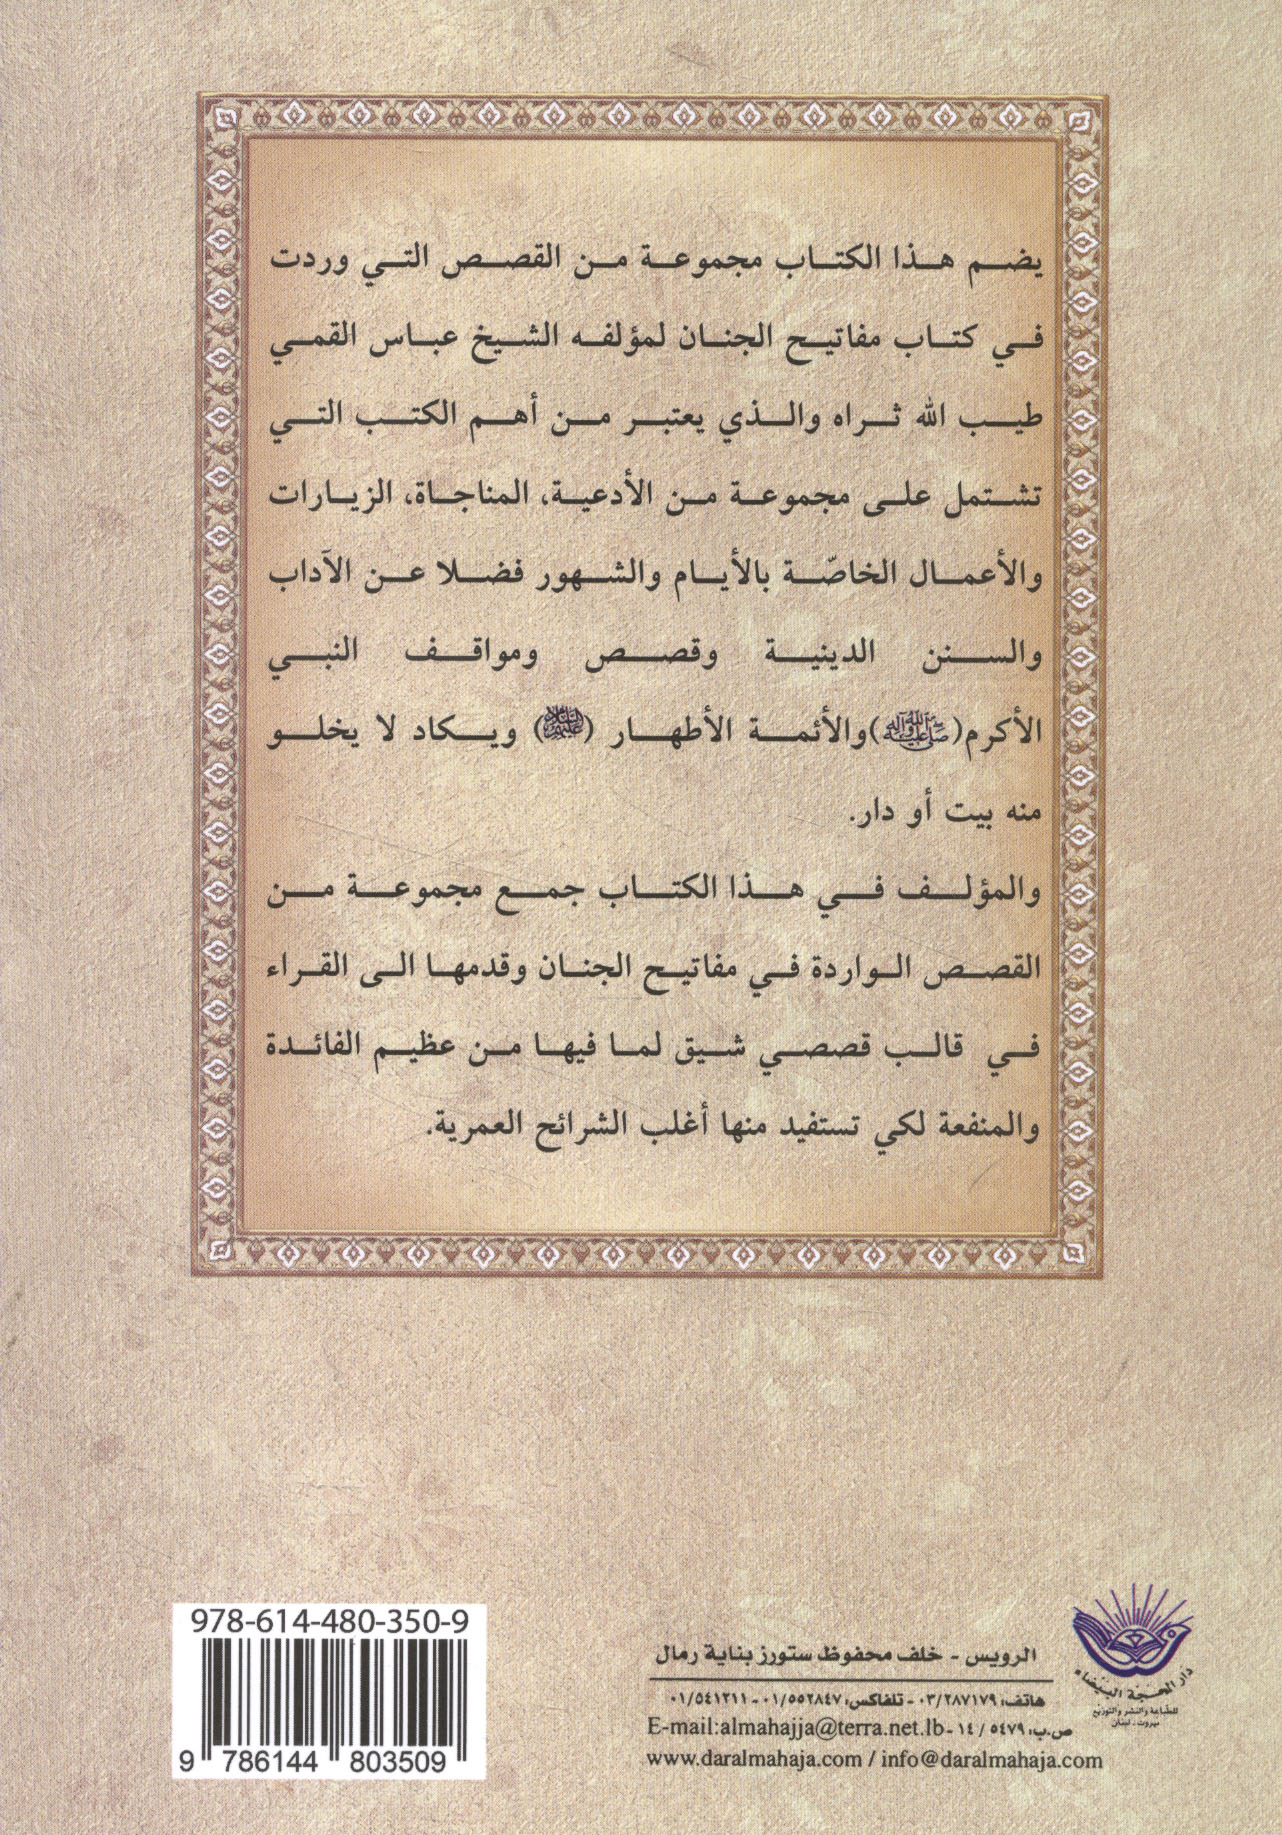 يضم هذا الكتاب مجموعة من القصص التي وردت
في كتاب مفاتيح الجنان لمؤلفه الشيخ عباس القمي
طيب الله ثراه والذي يعتبر من أهم الكتب التي
تشتمل على مجموعة من الأدعية، المناجاة، الزيارات
والأعمال الخاصّة بالأيام والشهور فضلا عن الآداب
والسنن الدينية وقصص ومواقف النبي
الأكرم(صلى الله عليه وآله)والأئمة الأطهار (عليهم السلام) ويكاد لا يخلو
منه بيت أو دار.
والمؤلف في هذا الكتاب جمع مجموعة من
القصص الواردة في مفاتيح الجنان وقدمها الى القراء
في قالب قصصي شيق لما فيها من عظيم الفائدة
والمنفعة لكي تستفيد منها أغلب الشرائح العمرية.
978-614-480-350-9
9 786144 803509
دار المحجة البيضاء
للطباعة والنشر والتوزيع
بيروت - لبنان
الرويس - خلف محفوظ ستورز بناية رمال
هاتف: ٠٣/٢٨٧١٧٩ - تلفاكس: ٠١/٥٥٢٨٤٧ - ٠١/٥٤١٢١١
ص.ب: ٥٤٧٩ / ١٤ -E-mail:almahajja@terra.net.lb
www.daralmahaja.com / info@daralmahaja.com